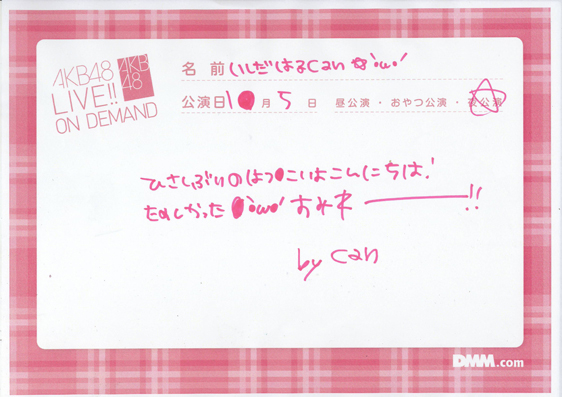 AKB48
LIVE!!
ON DEMAND
AKB
48
名 前 いしだはるcan ☆'ω'
公演日 10月 5 日 昼公演・おやつ公演・夜公演
ひさしぶりのはつこいよこんにちは!
たのしかった 'ω' おみネ ―――!!
by can
DMM.com